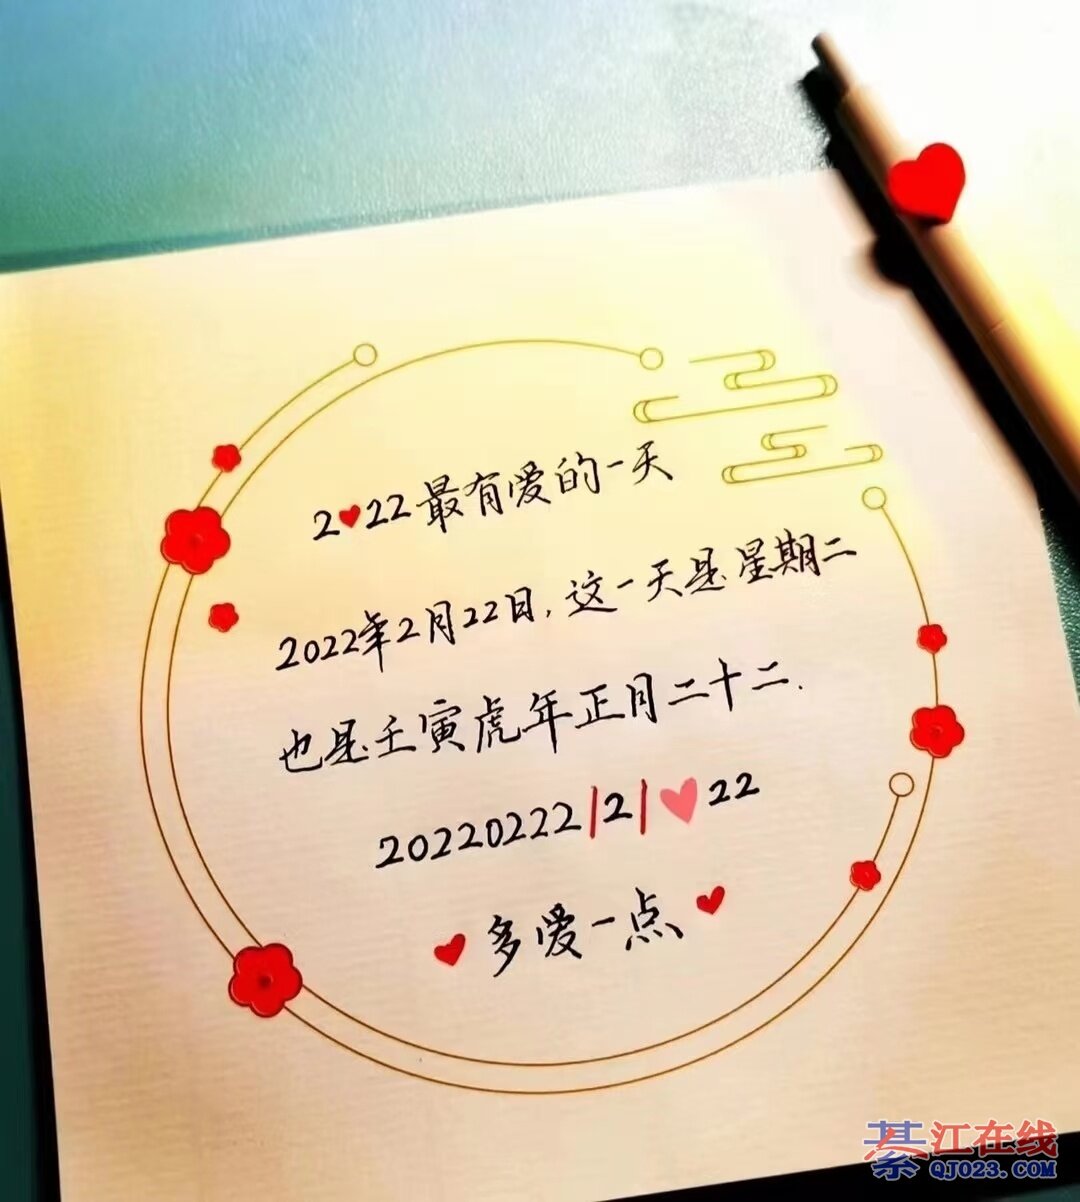 2❤22最有爱的一天
2022年2月22日,这一天是星期二
也是壬寅虎年正月二十二.
20220222|2|❤22
❤多爱一点❤
綦江在线
QJ023.COM